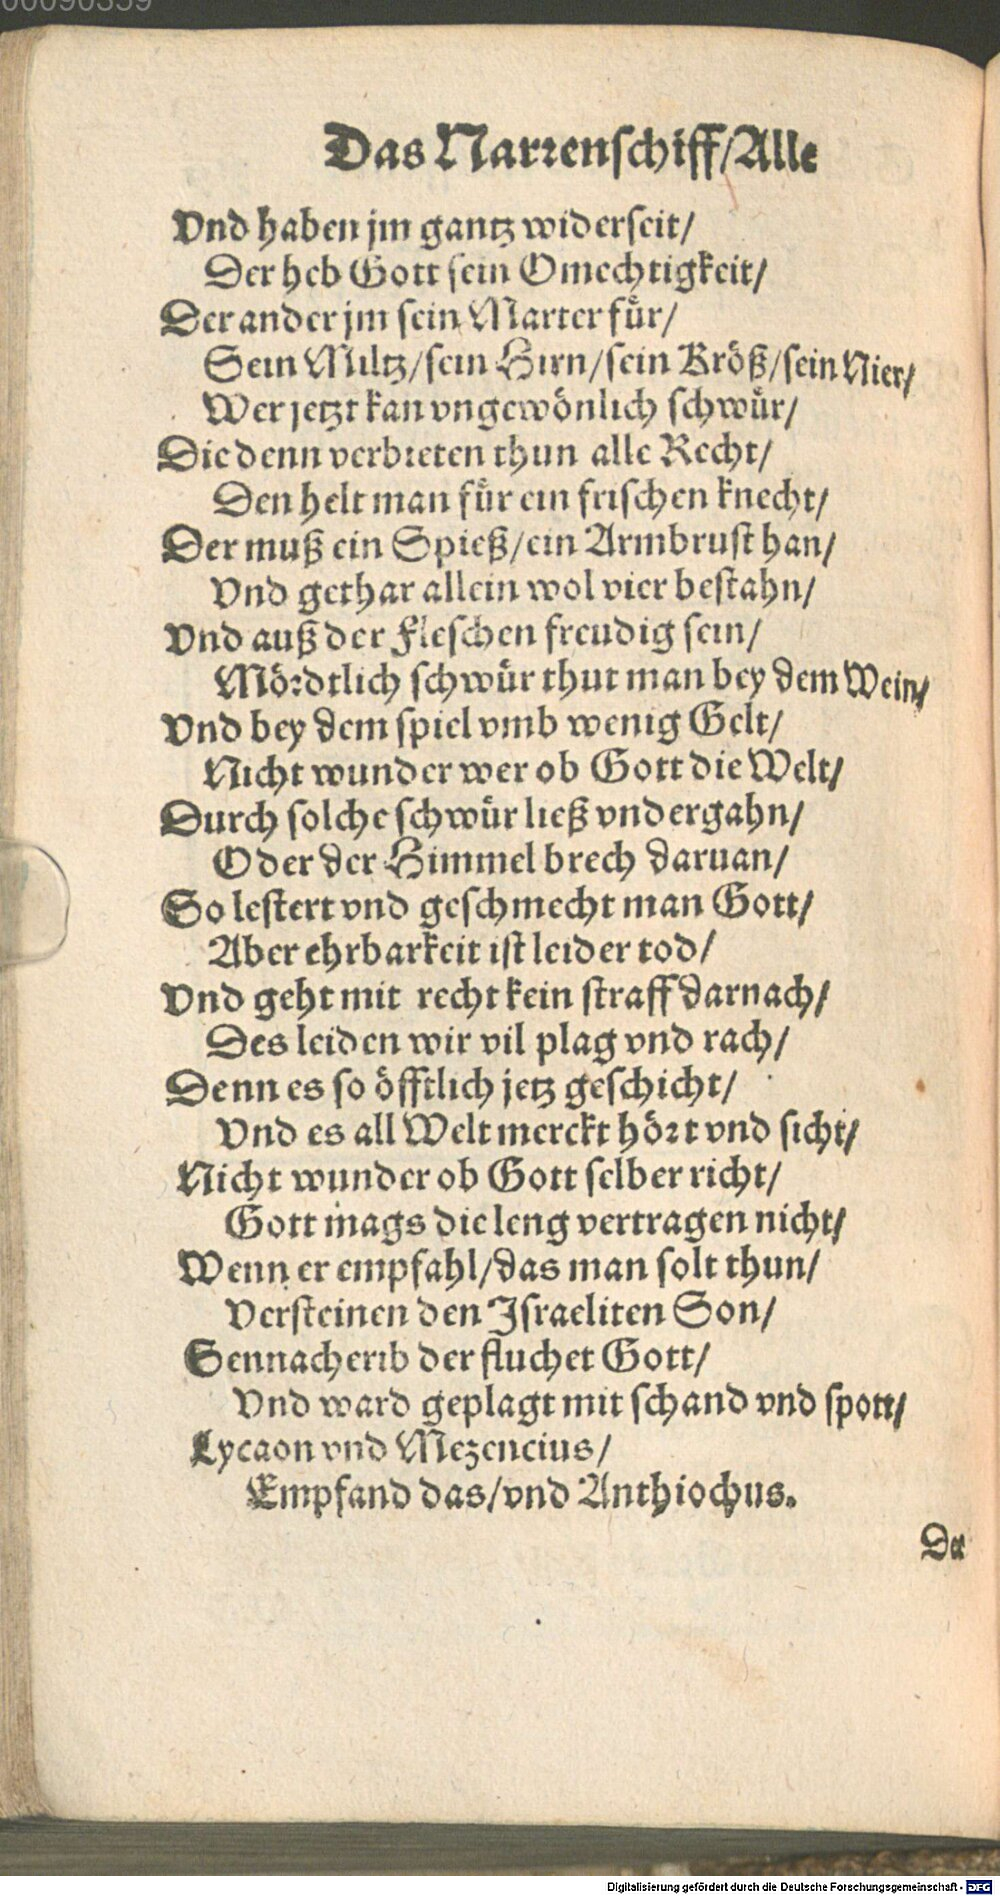 00090359
Das Narrenschiff/Alle
Vnd haben jm gantz widerseit/
Der heb Gott sein Omechtigkeit/
Der ander jm sein Marter fůr/
Sein Miltz/sein Hirn/sein Kröß/sein Nier/
Wer jetzt kan vngewönlich schwůr/
Die denn verbieten thun alle Recht/
Den helt man fůr ein frischen knecht/
Der muß ein Spieß/ein Armbrust han/
Vnd gethar allein wol vier bestahn/
Vnd auß der Fleschen freudig sein/
Mördtlich schwůr thut man bey dem Wein/
Vnd bey dem spiel vmb wenig Gelt/
Nicht wunder wer ob Gott die Welt/
Durch solche schwůr ließ vndergahn/
Oder der Himmel brech daruan/
So lestert vnd geschmecht man Gott/
Aber ehrbarkeit ist leider tod/
Vnd geht mit recht kein straff darnach/
Des leiden wir vil plag vnd rach/
Denn es so öfftlich jetz geschicht/
Vnd es all Welt merckt hört vnd sicht/
Nicht wunder ob Gott selber richt/
Gott mags die leng vertragen nicht/
Wenn er empfahl/das man solt thun/
Versteinen den Israeliten Son/
Sennacherib der fluchet Gott/
Vnd ward geplagt mit schand vnd spott/
Lycaon vnd Mezencius/
Empfand das/vnd Anthiochus.
Der
Digitalisierung gefördert durch die Deutsche Forschungsgemeinschaft - DFG